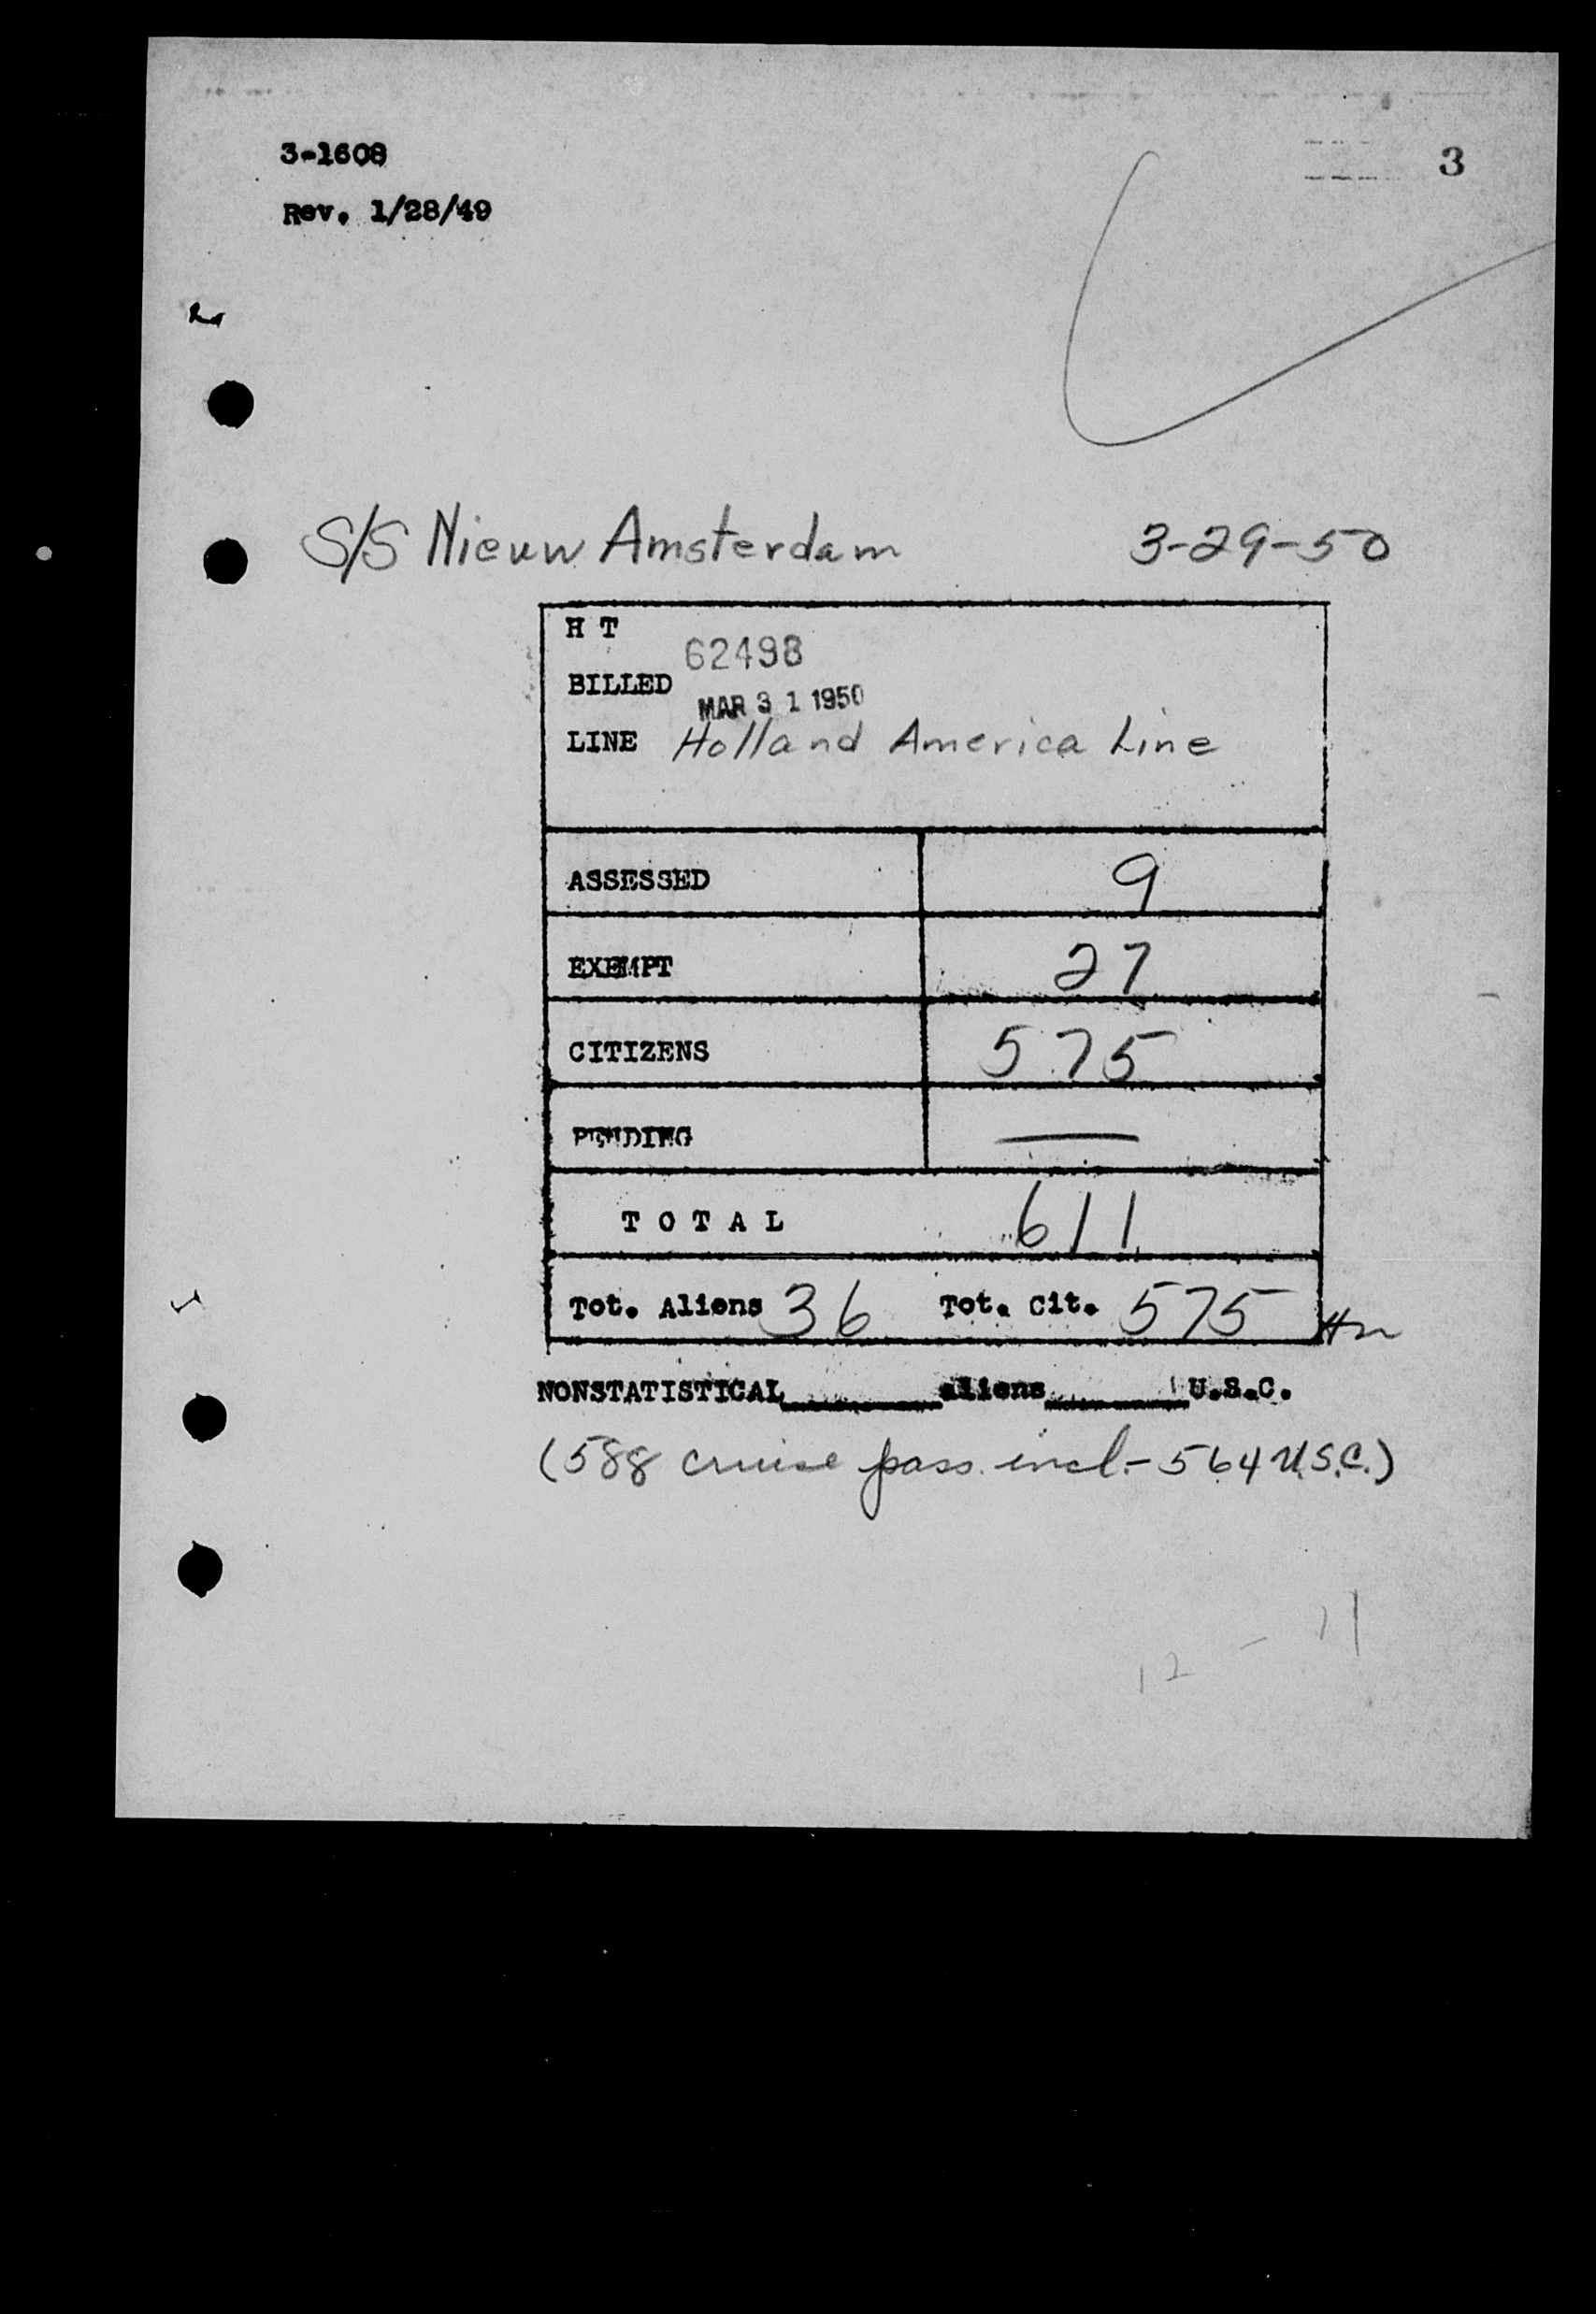 3-1608
3
Rev. 1/28/49
S/S Nieuw Amsterdam 3-29-50
H T 62498
BILLED MAR 31 1950
LINE Holland America Line
ASSESSED 9
EXEMPT 27
CITIZENS 575
PENDING —
T O T A L 611
Tot. Aliens 36 Tot. Cit. 575
NONSTATISTICAL________aliens________U.S.C.
(588 cruise pass. incl.- 564 U.S.C.)
12 - 11